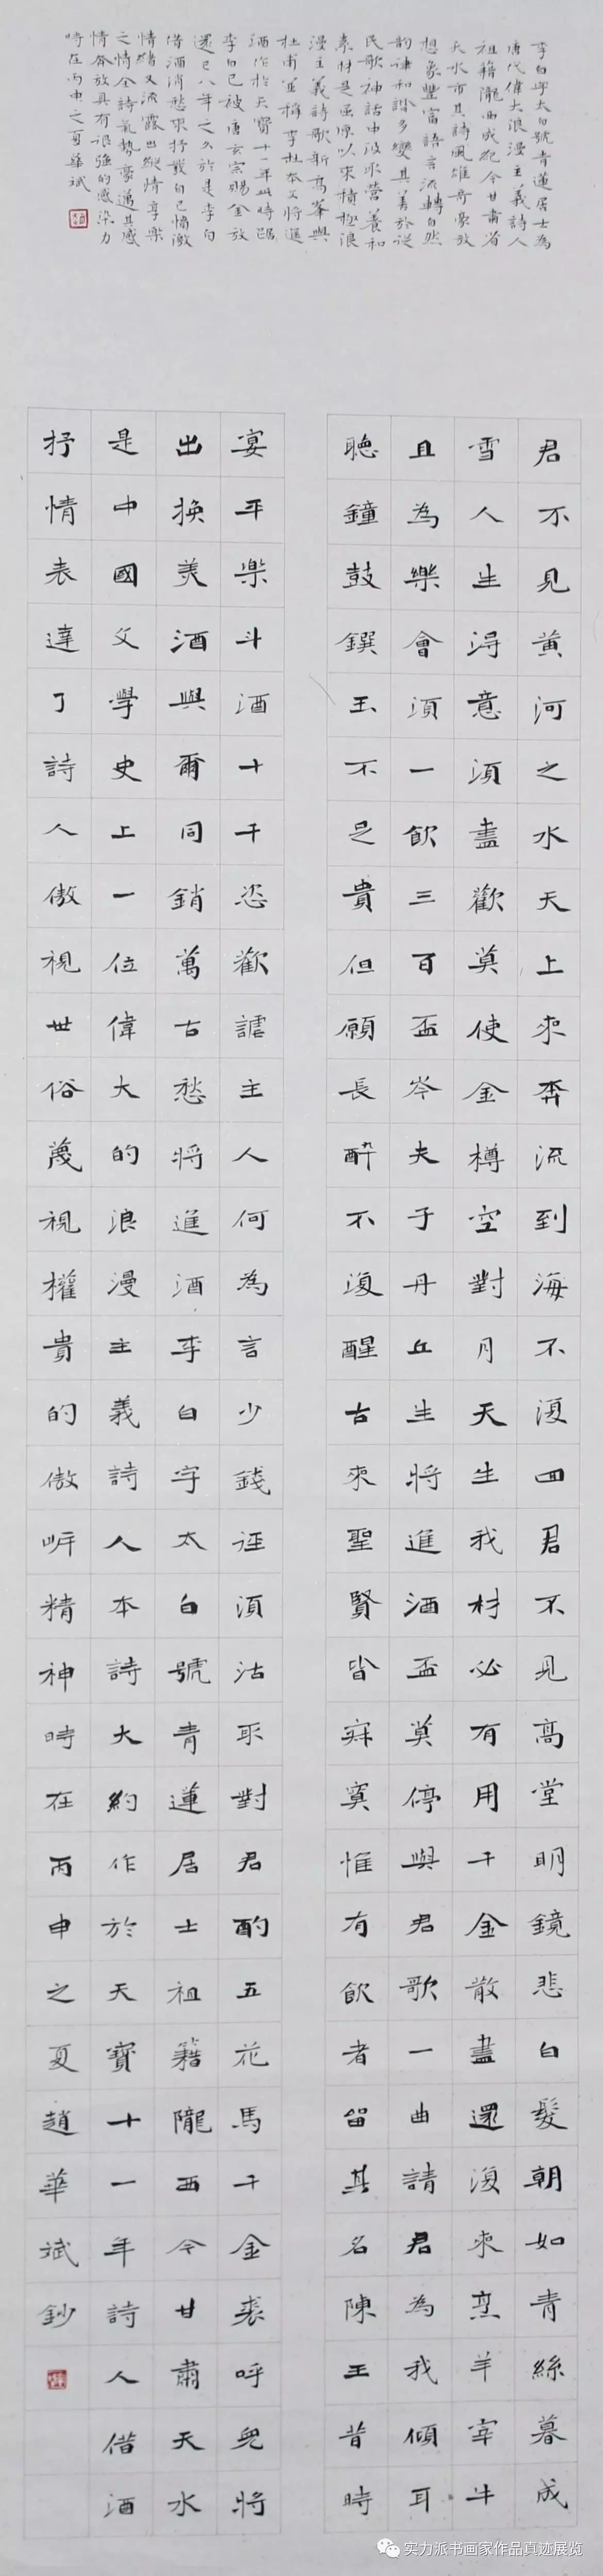 李白字太白號青蓮居士為
唐代偉大浪漫主義詩人
祖籍隴西成紀今甘肅省
天水市其詩風雄奇豪放
想象豐富語言流轉自然
韵律和諧多變其善於從
民歌神話中汲取營養和
素材是屈原以來積極浪
漫主義詩歌新高峯與
杜甫並稱李杜本文將進
酒作於天寶十一年此時距
李白已被唐玄宗賜金放
還已八年之久於是李白
借酒消愁來抒發自己憤激
情緒又流露出縱情享樂
之情全詩氣勢豪邁其感
情奔放具有很強的感染力
時在丙申之夏華斌
君不見黃河之水天上來奔流到海不復回君不見高堂明鏡悲白髮朝如青絲暮成
雪人生得意須盡歡莫使金樽空對月天生我材必有用千金散盡還復來烹羊宰牛
且為樂會須一飲三百盃岑夫子丹丘生將進酒盃莫停與君歌一曲請君為我傾耳
聽鐘鼓饌玉不足貴但願長醉不復醒古來聖賢皆寂寞惟有飲者留其名陳王昔時
宴平樂斗酒十千恣歡謔主人何為言少錢徑須沽取對君酌五花馬千金裘呼兒將
出換美酒與爾同銷萬古愁將進酒李白字太白號青蓮居士祖籍隴西今甘肅天水
是中國文學史上一位偉大的浪漫主義詩人本詩大約作於天寶十一年詩人借酒
抒情表達了詩人傲視世俗蔑視權貴的傲岸精神時在丙申之夏趙華斌鈔
实力派书画家作品真迹展览